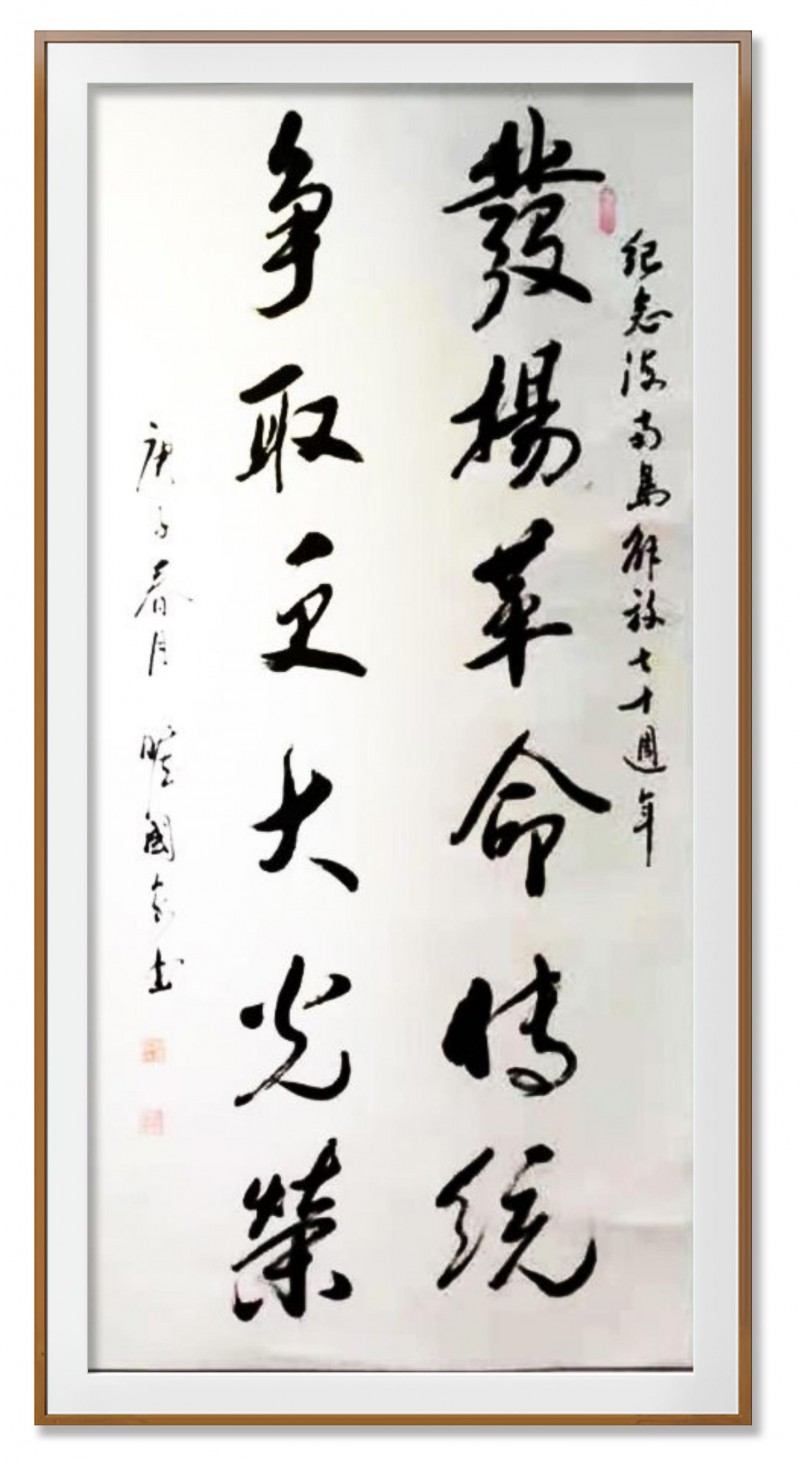 纪念海南島解放七十週年
發揚革命传统
争取更大光榮
庚子春月 國 书